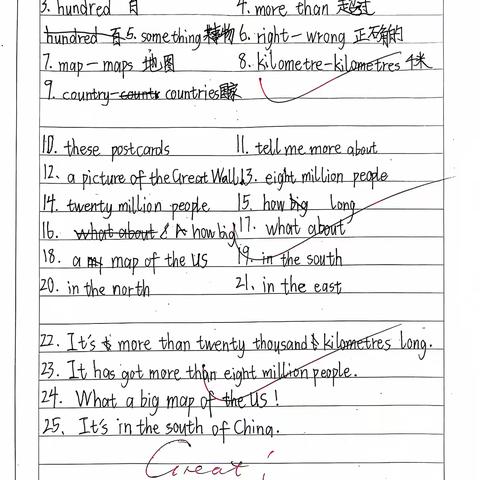 3. hundred 百 4. more than 超过
hundred 百 5. something 6. right-wrong 正确的
7. map-maps 地图 8. kilometre-kilometres 千米
9. country- countries 国家
10. these postcards 11. tell me more about
12. a picture of the Great Wall 13. eight million people
14. twenty million people 15. how long
16. what about how big 17. what about
18. a map of the US 19. in the south
20. in the north 21. in the east
22. It's more than twenty thousand kilometres long.
23. It has got more than eight million people.
24. What a big map of the US!
25. It's in the south of China.
Great!